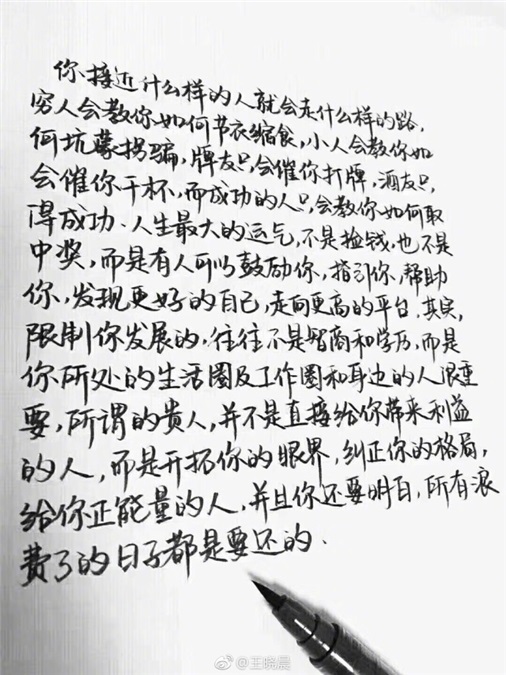 你接近什么样的人就会走什么样的路,
穷人会教你如何节衣缩食,小人会教你如
何坑蒙拐骗,牌友只会催你打牌,酒友只
会催你干杯,而成功的人只会教你如何取
得成功.人生最大的运气,不是捡钱,也不是
中奖,而是有人可以鼓励你,指引你,帮助
你,发现更好的自己,走向更高的平台.其实,
限制你发展的,往往不是智商和学历,而是
你所处的生活圈及工作圈和身边的人很重
要,所谓的贵人,并不是直接给你带来利益
的人,而是开拓你的眼界,纠正你的格局,
给你正能量的人,并且你还要明白,所有浪
费了的日子都是要还的.
@王晓晨